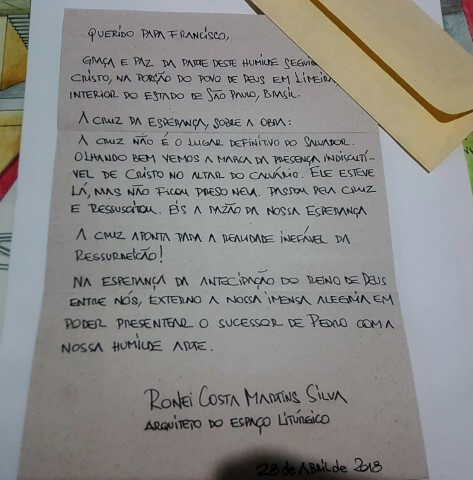 QUERIDO PAPA FRANCISCO,
GRAÇA E PAZ DA PARTE DESTE HUMILDE
CRISTO, NA PORÇÃO DO POVO DE DEUS EM LIMEIRA
INTERIOR DO ESTADO DE SÃO PAULO, BRASIL.
A CRUZ DA ESPERANÇA, SOBRE A OBRA:
A CRUZ NÃO É O LUGAR DEFINITIVO DO SALVADOR.
OLHANDO BEM VEMOS A MARCA DA PRESENÇA INDISCUTÍ-
VEL DE CRISTO NO ALTAR DO CALVÁRIO. ELE ESTEVE
LÁ, MAS NÃO FICOU PRESO NELA. PASSOU PELA CRUZ
E RESSUSCITOU. EIS A RAZÃO DA NOSSA ESPERANÇA
A CRUZ APONTA PARA A REALIDADE INEFÁVEL DA
RESSURREIÇÃO!
NA ESPERANÇA DA ANTECIPAÇÃO DO REINO DE DEUS
ENTRE NÓS, EXTERNO A NOSSA IMENSA ALEGRIA EM
PODER PRESENTEAR O SUCESSOR DE PEDRO COM A
NOSSA HUMILDE ARTE.
RONEI COSTA MARTINS SILVA
ARQUITETO DO ESPAÇO LITÚRGICO
28 de ABRIL de 2018